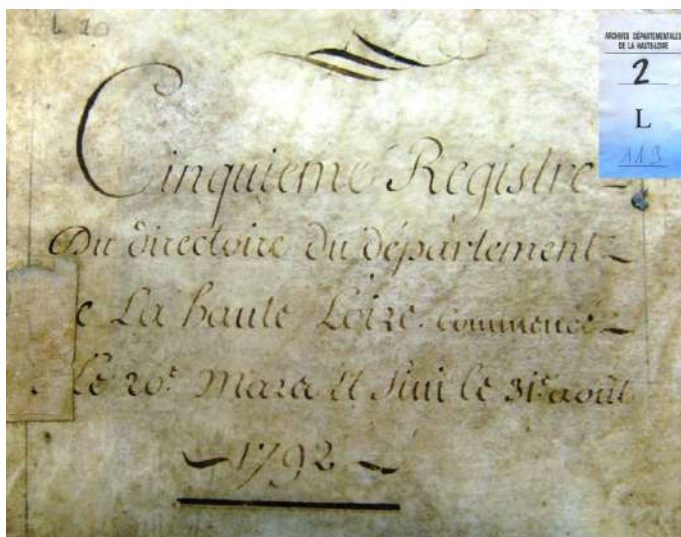 L 20
ARCHIVES DÉPARTEMENTALES
DE LA HAUTE-LOIRE
2
L
113
Cinquieme Registre
Du directoire du département
e La haute Loire commencé
Le 20e. Mars et fini le 31e août
1792